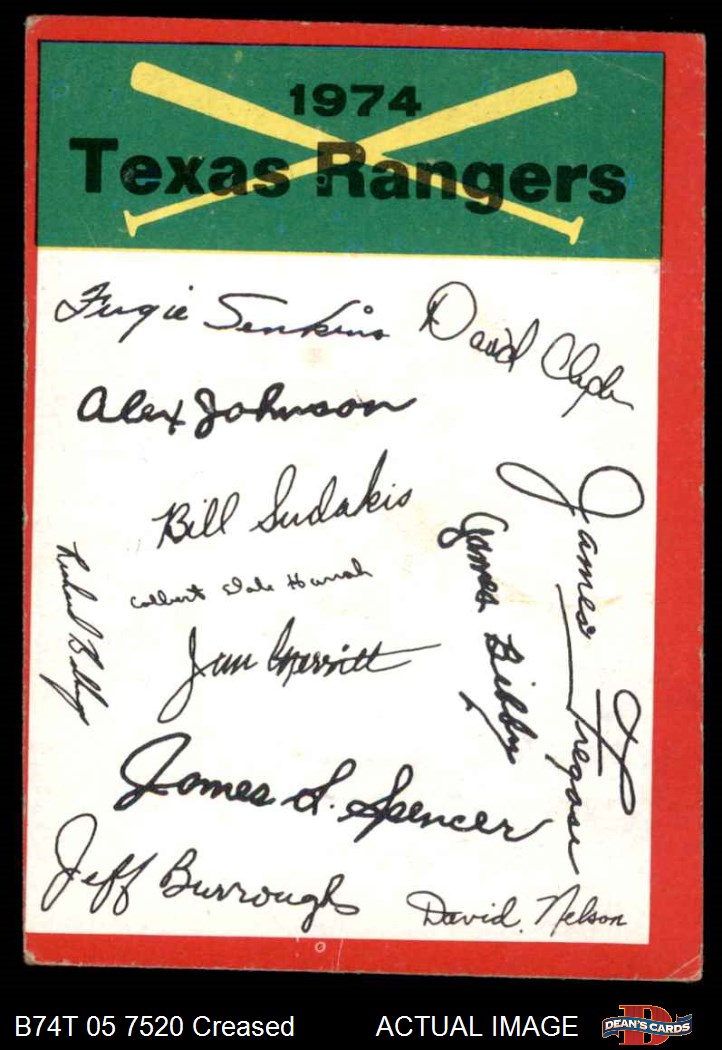 1974
Texas Rangers
Fergie Jenkins
David Clyde
Alex Johnson
Bill Sudakis
James Fregosi
James Bibby
Colbert Dale Harrah
Richard Billings
Jim Merritt
James L. Spencer
Jeff Burroughs
David. Nelson
B74T 05 7520 Creased
ACTUAL IMAGE
D
DEAN'S CARDS